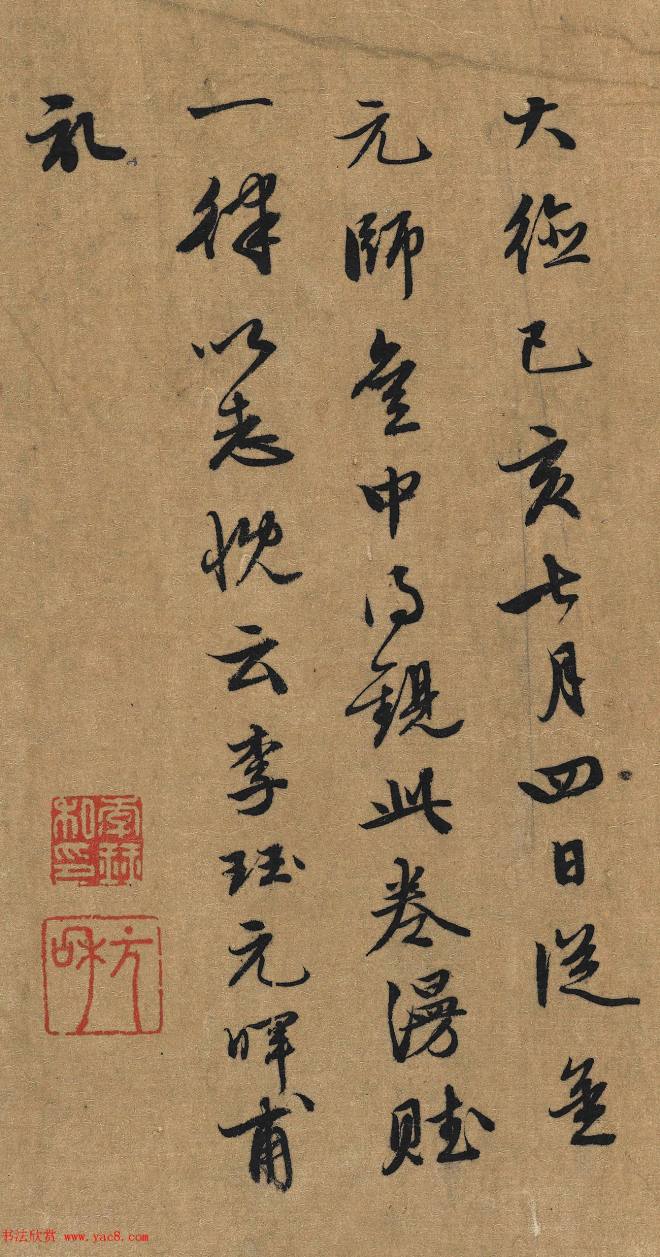 大德己亥七月四日從金
元師中得觀此卷漫賦
一律以志悅云李珏元暉甫
礼
书法欣赏 www.yac8.com